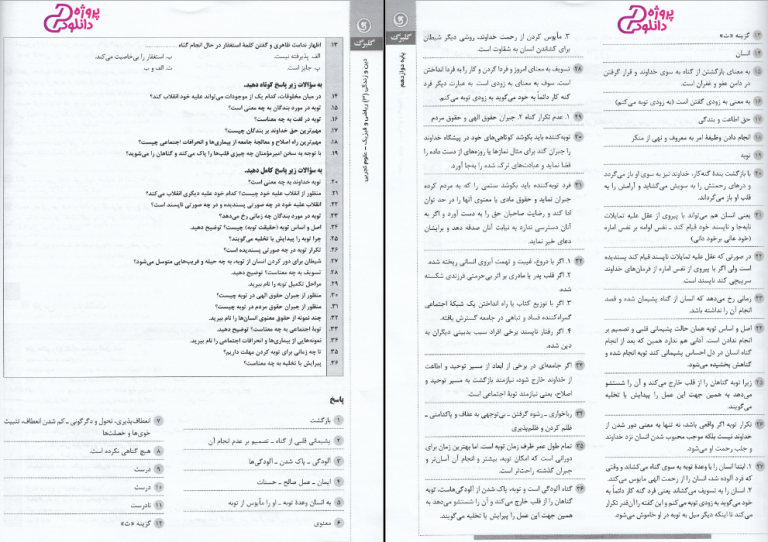 پروژه
دانلود
گلبرگ
دین و زندگی (۳) ریاضی و فیزیک - علوم تجربی
۱۳. اظهار ندامت ظاهری و گفتن کلمهٔ استغفار در حال انجام گناه
الف. پذیرفته نیست.
ب. استغفار را بی‌خاصیت می‌کند.
پ. جایز است.
ت. الف و ب
به سؤالات زیر پاسخ کوتاه دهید.
۱۴. در میان مخلوقات، کدام یک از موجودات می‌تواند علیه خود انقلاب کند؟
۱۵. توبه در مورد بندگان به چه معنی است؟
۱۶. توبه در لغت به چه معناست؟
۱۷. مهم‌ترین حق خداوند بر بندگان چیست؟
۱۸. مهم‌ترین راه اصلاح و معالجهٔ جامعه از بیماری‌ها و انحرافات اجتماعی چیست؟
۱۹. با توجه به سخن امیرمؤمنان چه چیزی قلب‌ها را پاک می‌کند و گناهان را می‌شوید؟
به سؤالات زیر پاسخ کامل دهید.
۲۰. توبه خداوند به چه معنی است؟
۲۱. منظور از انقلاب علیه خود چیست؟ کدام خود علیه دیگری انقلاب می‌کند؟
۲۲. انقلاب علیه خود در چه صورتی پسندیده و در چه صورتی ناپسند است؟
۲۳. توبه در مورد بندگان چه زمانی رخ می‌دهد؟
۲۴. اصل و اساس توبه (حقیقت توبه) چیست؟ توضیح دهید.
۲۵. چرا توبه را پیرایش یا تخلیه می‌گویند؟
۲۶. تکرار توبه در چه صورتی پسندیده است؟
۲۷. شیطان برای دور کردن انسان از توبه، به چه حیله و فریب‌هایی متوسل می‌شود؟
۲۸. تسویف به چه معناست؟ توضیح دهید.
۲۹. مراحل تکمیل توبه را نام ببرید.
۳۰. منظور از جبران حقوق الهی در توبه چیست؟
۳۱. منظور از جبران حقوق مردم در توبه چیست؟
۳۲. چند نمونه از حقوق معنوی انسان‌ها را نام ببرید.
۳۳. توبهٔ اجتماعی به چه معناست؟ توضیح دهید.
۳۴. نمونه‌هایی از بیماری‌ها و انحرافات اجتماعی را نام ببرید.
۳۵. تا چه زمانی برای توبه کردن مهلت داریم؟
۳۶. پیرایش یا تخلیه به چه معناست؟
پاسخ
۱ بازگشت
۲ پشیمانی قلبی از گناه - تصمیم بر عدم انجام آن
۳ آلودگی - پاک شدن - آلودگی‌ها
۴ ایمان - عمل صالح - حسنات
۵ به انسان وعدهٔ توبه - او را مأیوس از توبه
۶ معنوی
۷ انعطاف‌پذیری، تحول و دگرگونی - کم شدن انعطاف، تثبیت
خوی‌ها و خصلت‌ها
۸ هیچ گناهی نکرده است.
۹ درست
۱۰ درست
۱۱ نادرست
۱۲ گزینه «ت»
پایه دوازدهم
گلبرگ
پروژه
دانلود
۱۳ گزینه «ت»
۱۴ انسان
۱۵ به معنای بازگشتن از گناه به سوی خداوند و قرار گرفتن
در دامن عفو و غفران است.
۱۶ به معنی به زودی گفتن است (به زودی توبه می‌کنم)
۱۷ حق اطاعت و بندگی
۱۸ انجام دادن وظیفهٔ امر به معروف و نهی از منکر
۱۹ توبه
۲۰ با بازگشت بندهٔ گنه‌کار، خداوند نیز به سوی او باز می‌گردد
و درهای رحمتش را به سویش می‌گشاید و آرامش را به
قلب او باز می‌گرداند.
۲۱ یعنی انسان هم می‌تواند با پیروی از عقل علیه تمایلات
نابه‌جا و ناپسند خود قیام کند. - نفس لوامه بر نفس اماره
(خود عالی بر خود دانی)
۲۲ در صورتی که عقل علیه تمایلات ناپسند قیام کند پسندیده
است ولی اگر با پیروی از نفس اماره از فرمان‌های خداوند
سرپیچی کند ناپسند است.
۲۳ زمانی رخ می‌دهد که انسان از گناه پشیمان شده و قصد
انجام آن را نداشته باشد.
۲۴ اصل و اساس توبه همان حالت پشیمانی قلبی و تصمیم بر
انجام ندادن است. آدمی هم ندارد همین که بعد از انجام
گناه انسان در دل احساس پشیمانی کند توبه انجام شده و
گناهش بخشیده می‌شود.
۲۵ زیرا توبه گناهان را از قلب خارج می‌کند و آن را شستشو
می‌دهد به همین جهت این عمل را پیرایش یا تخلیه
می‌گویند.
۲۶ تکرار توبه اگر واقعی باشد، نه تنها به معنی دور شدن از
خداوند نیست بلکه موجب محبوب شدن انسان نزد خداوند
و جلب رحمت او می‌شود.
۲۷ ۱. ابتدا انسان را با وعدهٔ توبه به سوی گناه می‌کشاند و وقتی
که فرد آلوده شد، انسان را از رحمت الهی مأیوس می‌کند.
۲. انسان را به تسویف می‌کشاند یعنی فرد گنه کار دائماً به
خود می‌گوید به زودی توبه می‌کنم و این گفته را آن‌قدر تکرار
می‌کند تا اینکه دیگر میل به توبه در او خاموش می‌شود.
۳. مأیوس کردن از رحمت خداوند، روشی دیگر شیطان
برای کشاندن انسان به شقاوت است.
۲۸ تسویف به معنای امروز و فردا کردن و کار را به فردا انداختن
است. سوف به معنای به زودی است. به عبارت دیگر فرد
گنه کار دائماً به خود می‌گوید به زودی توبه می‌کنم
۲۹ ۱. عدم تکرار گناه ۲. جبران حقوق الهی و حقوق مردم
۳۰ توبه‌کننده باید بکوشد کوتاهی‌های خود در پیشگاه خداوند
را جبران کند برای مثال نمازها یا روزه‌های از دست داده را
قضا نماید و عبادت‌های ترک شده را به‌جا آورد.
۳۱ فرد توبه‌کننده باید بکوشد ستمی را که به مردم کرده
جبران نماید و حقوق مادی یا معنوی آنها را در حد توان
ادا کند و رضایت صاحبان حق را به دست آورد و اگر به
آنان دسترسی ندارد به نیابت آنان صدقه دهد و برایشان
دعای خیر نماید.
۳۲ ۱. اگر با دروغ، غیبت و تهمت آبروی انسانی ریخته شده.
۲. اگر قلب پدر یا مادری بر اثر بی‌حرمتی فرزندی شکسته
شده.
۳. اگر با توزیع کتاب یا راه انداختن یک شبکهٔ اجتماعی
گمراه‌کننده فساد و تباهی در جامعه گسترش یافته.
۴. اگر رفتار ناپسند برخی افراد سبب بدبینی دیگران به
دین شده.
۳۳ اگر جامعه‌ای در برخی از ابعاد از مسیر توحید و اطاعت
از خداوند خارج شود، نیازمند بازگشت به مسیر توحید و
اصلاح، یعنی نیازمند توبهٔ اجتماعی است.
۳۴ رباخواری - رشوه گرفتن - بی‌توجهی به عفاف و پاکدامنی -
ظلم کردن و ظلم‌پذیری
۳۵ تمام طول عمر ظرف زمان توبه است. اما بهترین زمان برای
دورانی است که امکان توبه، بیشتر و انجام آن آسان‌تر و
جبران گذشته راحت‌تر است.
۳۶ گناه آلودگی است و توبه، پاک شدن از آلودگی‌هاست. توبه
گناهان را از قلب خارج می‌کند و آن را شستشو می‌دهد به
همین جهت این عمل را پیرایش یا تخلیه می‌گویند.